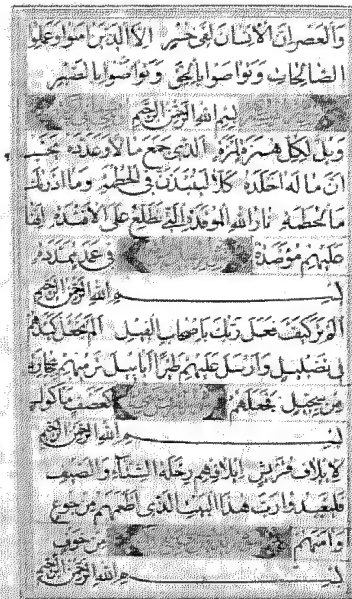 والعصر ان الانسان لفى خسر الا الذين امنوا وعملوا
الصالحات وتواصوا بالحق وتواصوا بالصبر
بسم الله الرحمن الرحيم
ويل لكل همزة لمزة الذى جمع مالا وعدده يحسب
ان ماله اخلده كلا لينبذن فى الحطمة وما ادريك
ما الحطمة نار الله الموقدة التى تطلع على الافئدة انها
عليهم مؤصدة فى عمد ممددة
بسم الله الرحمن الرحيم
الم تر كيف فعل ربك باصحاب الفيل الم يجعل كيدهم
فى تضليل وارسل عليهم طيرا ابابيل ترميهم بحجارة
من سجيل فجعلهم كعصف مأكول
بسم الله الرحمن الرحيم
لايلاف قريش ايلافهم رحلة الشتاء والصيف
فليعبدوا رب هذا البيت الذى اطعمهم من جوع
وامنهم من خوف
بسم الله الرحمن الرحيم